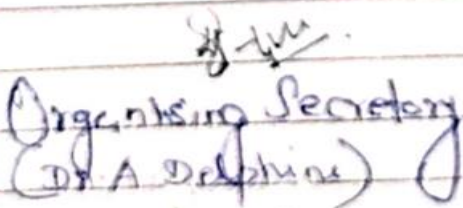 Organising Secretary
(Dr A Delphine)